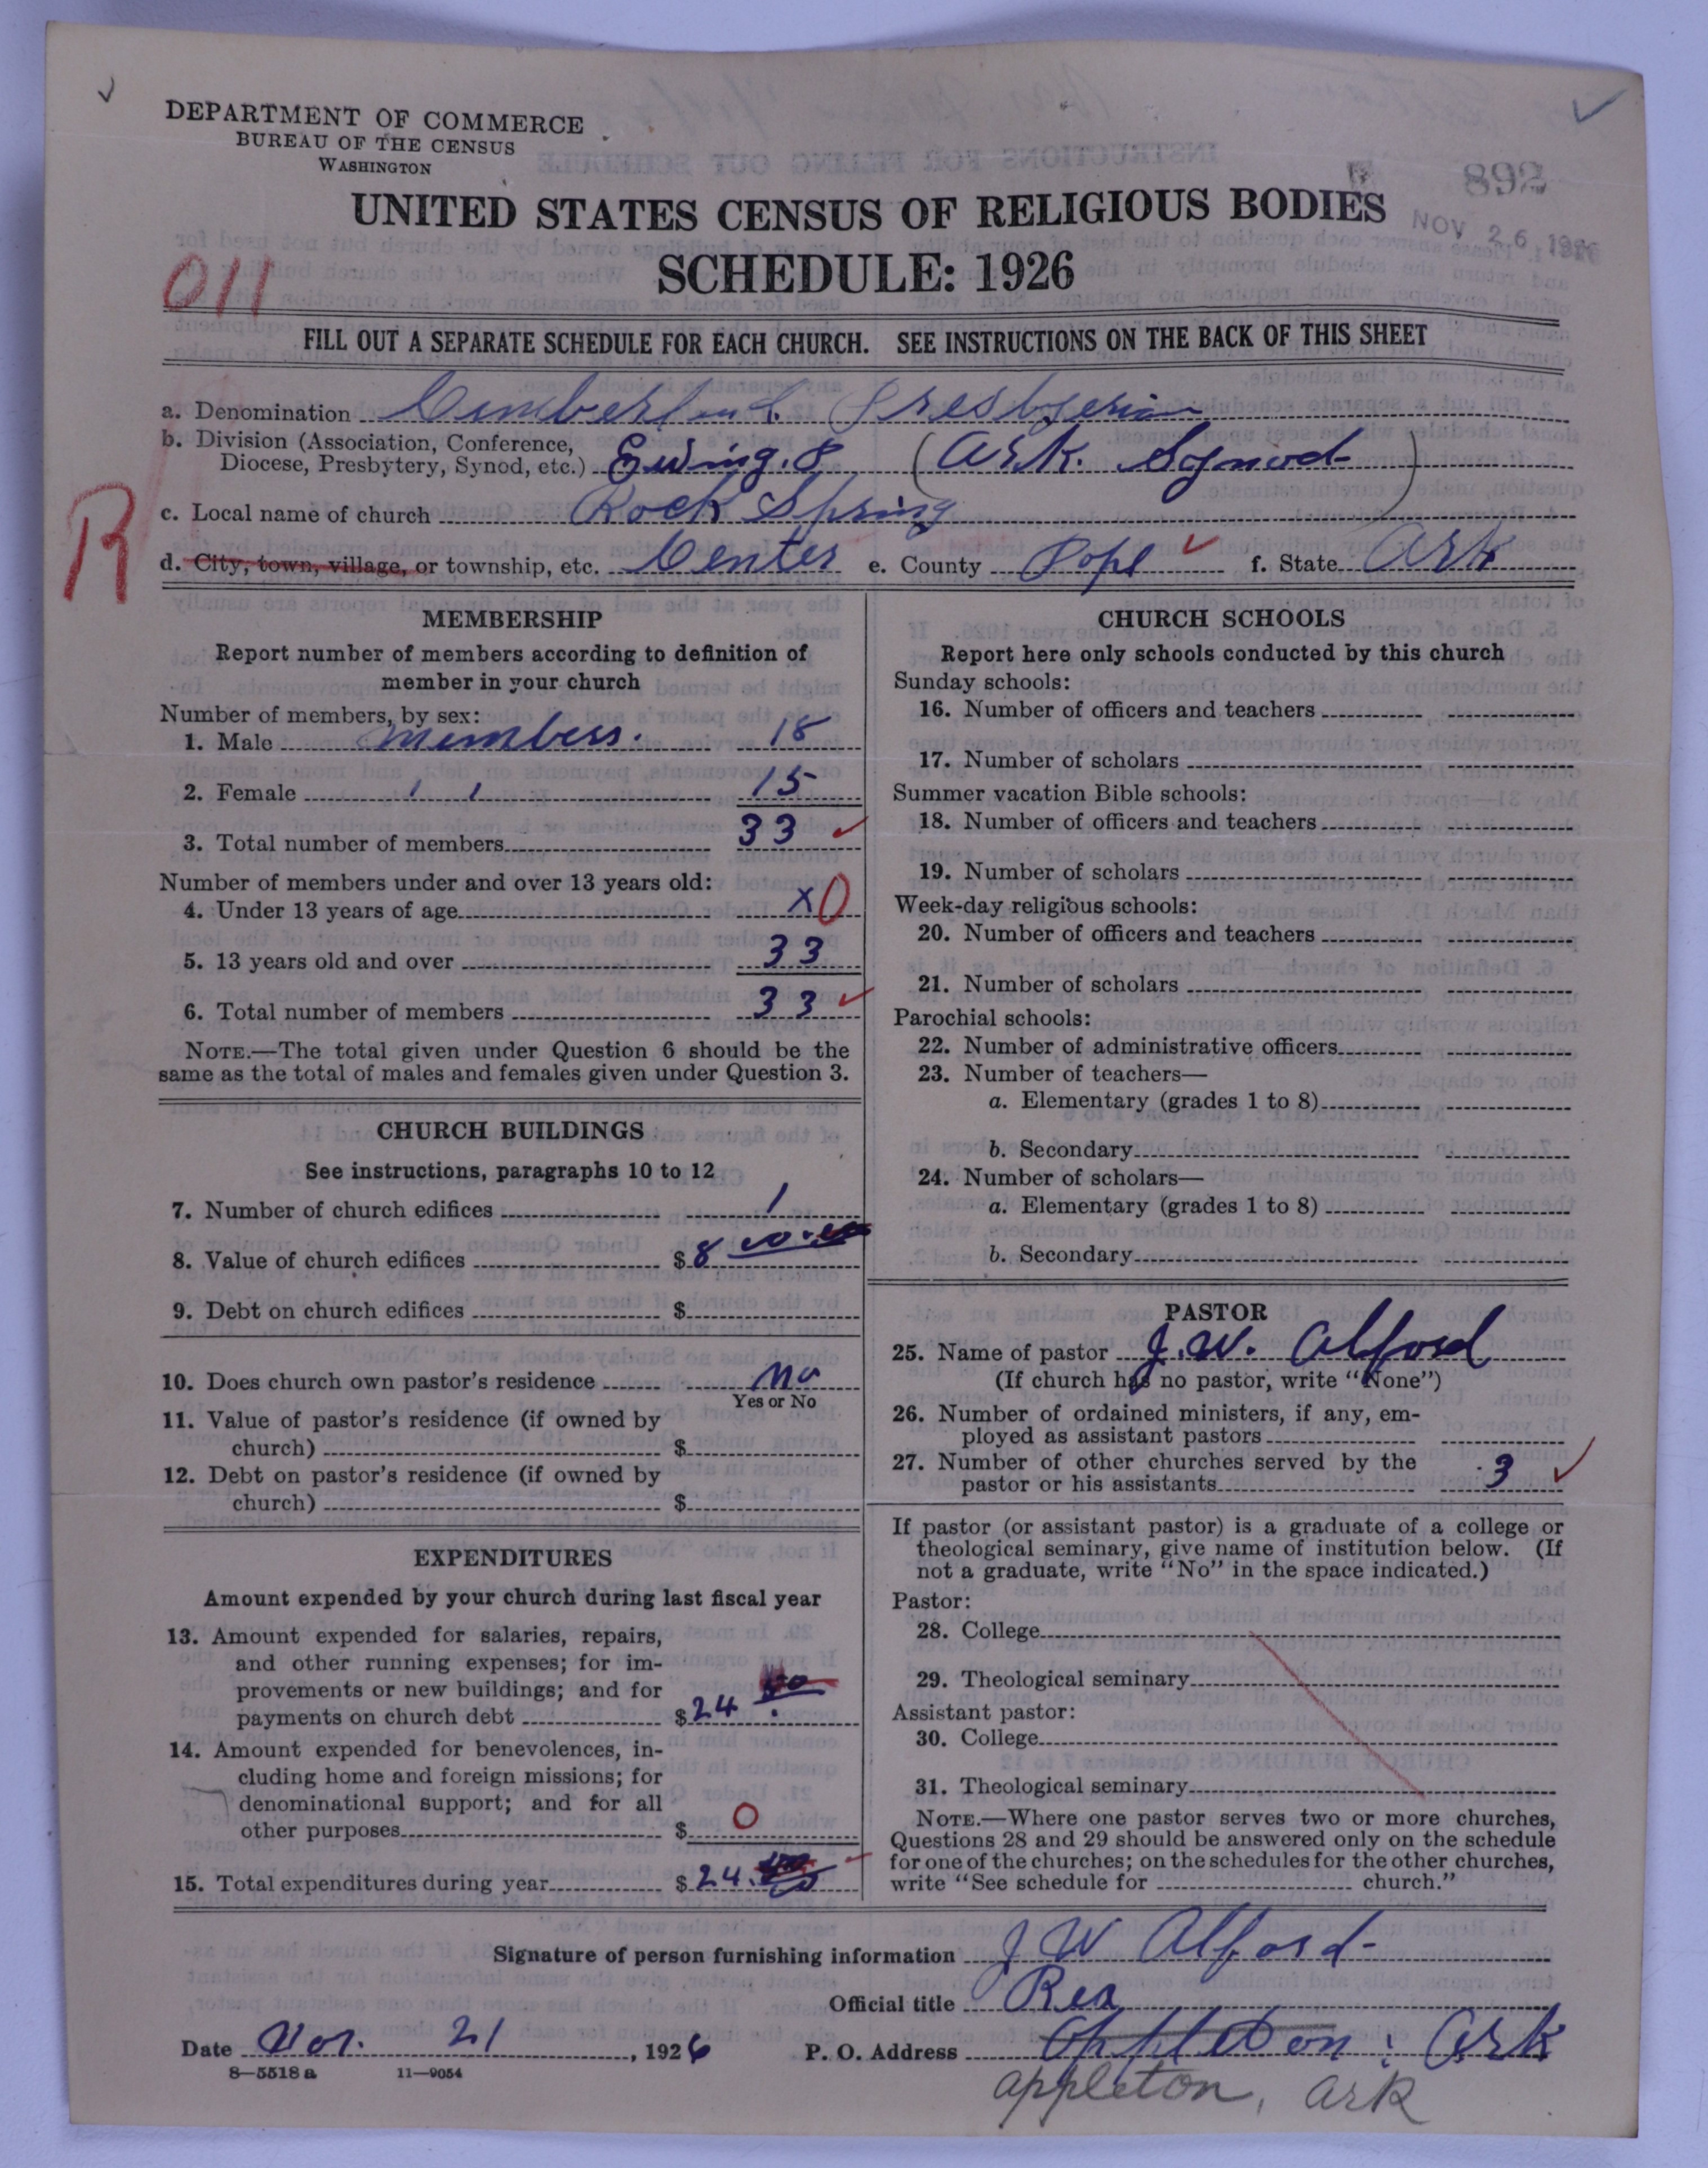 DEPARTMENT OF COMMERCE
BUREAU OF THE CENSUS
WASHINGTON
892
UNITED STATES CENSUS OF RELIGIOUS BODIES
NOV 26 1926
SCHEDULE: 1926
011
FILL OUT A SEPARATE SCHEDULE FOR EACH CHURCH. SEE INSTRUCTIONS ON THE BACK OF THIS SHEET
a. Denomination Cumberland Presbyterian
b. Division (Association, Conference,
Diocese, Presbytery, Synod, etc.) Ewing. (Ark. Synod)
c. Local name of church Rock Spring
R
d. City, town, village, or township, etc. Center e. County Pope f. State Ark
MEMBERSHIP
Report number of members according to definition of
member in your church
Number of members, by sex:
1. Male members. 18
2. Female " 15
3. Total number of members 33
Number of members under and over 13 years old:
4. Under 13 years of age x 0
5. 13 years old and over 33
6. Total number of members 33
NOTE.—The total given under Question 6 should be the
same as the total of males and females given under Question 3.
CHURCH BUILDINGS
See instructions, paragraphs 10 to 12
7. Number of church edifices 1
8. Value of church edifices $ 8
9. Debt on church edifices $
10. Does church own pastor's residence no
Yes or No
11. Value of pastor's residence (if owned by
church) $
12. Debt on pastor's residence (if owned by
church) $
EXPENDITURES
Amount expended by your church during last fiscal year
13. Amount expended for salaries, repairs,
and other running expenses; for im-
provements or new buildings; and for
payments on church debt $ 24
14. Amount expended for benevolences, in-
cluding home and foreign missions; for
denominational support; and for all
other purposes $ 0
15. Total expenditures during year $ 24.
CHURCH SCHOOLS
Report here only schools conducted by this church
Sunday schools:
16. Number of officers and teachers
17. Number of scholars
Summer vacation Bible schools:
18. Number of officers and teachers
19. Number of scholars
Week-day religious schools:
20. Number of officers and teachers
21. Number of scholars
Parochial schools:
22. Number of administrative officers
23. Number of teachers—
a. Elementary (grades 1 to 8)
b. Secondary
24. Number of scholars—
a. Elementary (grades 1 to 8)
b. Secondary
PASTOR
25. Name of pastor J. W. Alford
(If church has no pastor, write "None")
26. Number of ordained ministers, if any, em-
ployed as assistant pastors
27. Number of other churches served by the
pastor or his assistants 3
If pastor (or assistant pastor) is a graduate of a college or
theological seminary, give name of institution below. (If
not a graduate, write "No" in the space indicated.)
Pastor:
28. College
29. Theological seminary
Assistant pastor:
30. College
31. Theological seminary
NOTE.—Where one pastor serves two or more churches,
Questions 28 and 29 should be answered only on the schedule
for one of the churches; on the schedules for the other churches,
write "See schedule for church."
Signature of person furnishing information J W Alford
Official title Rev
Date Nov. 21, 1926 P. O. Address Appleton: Ark
8—5518 a 11—9054
appleton, ark